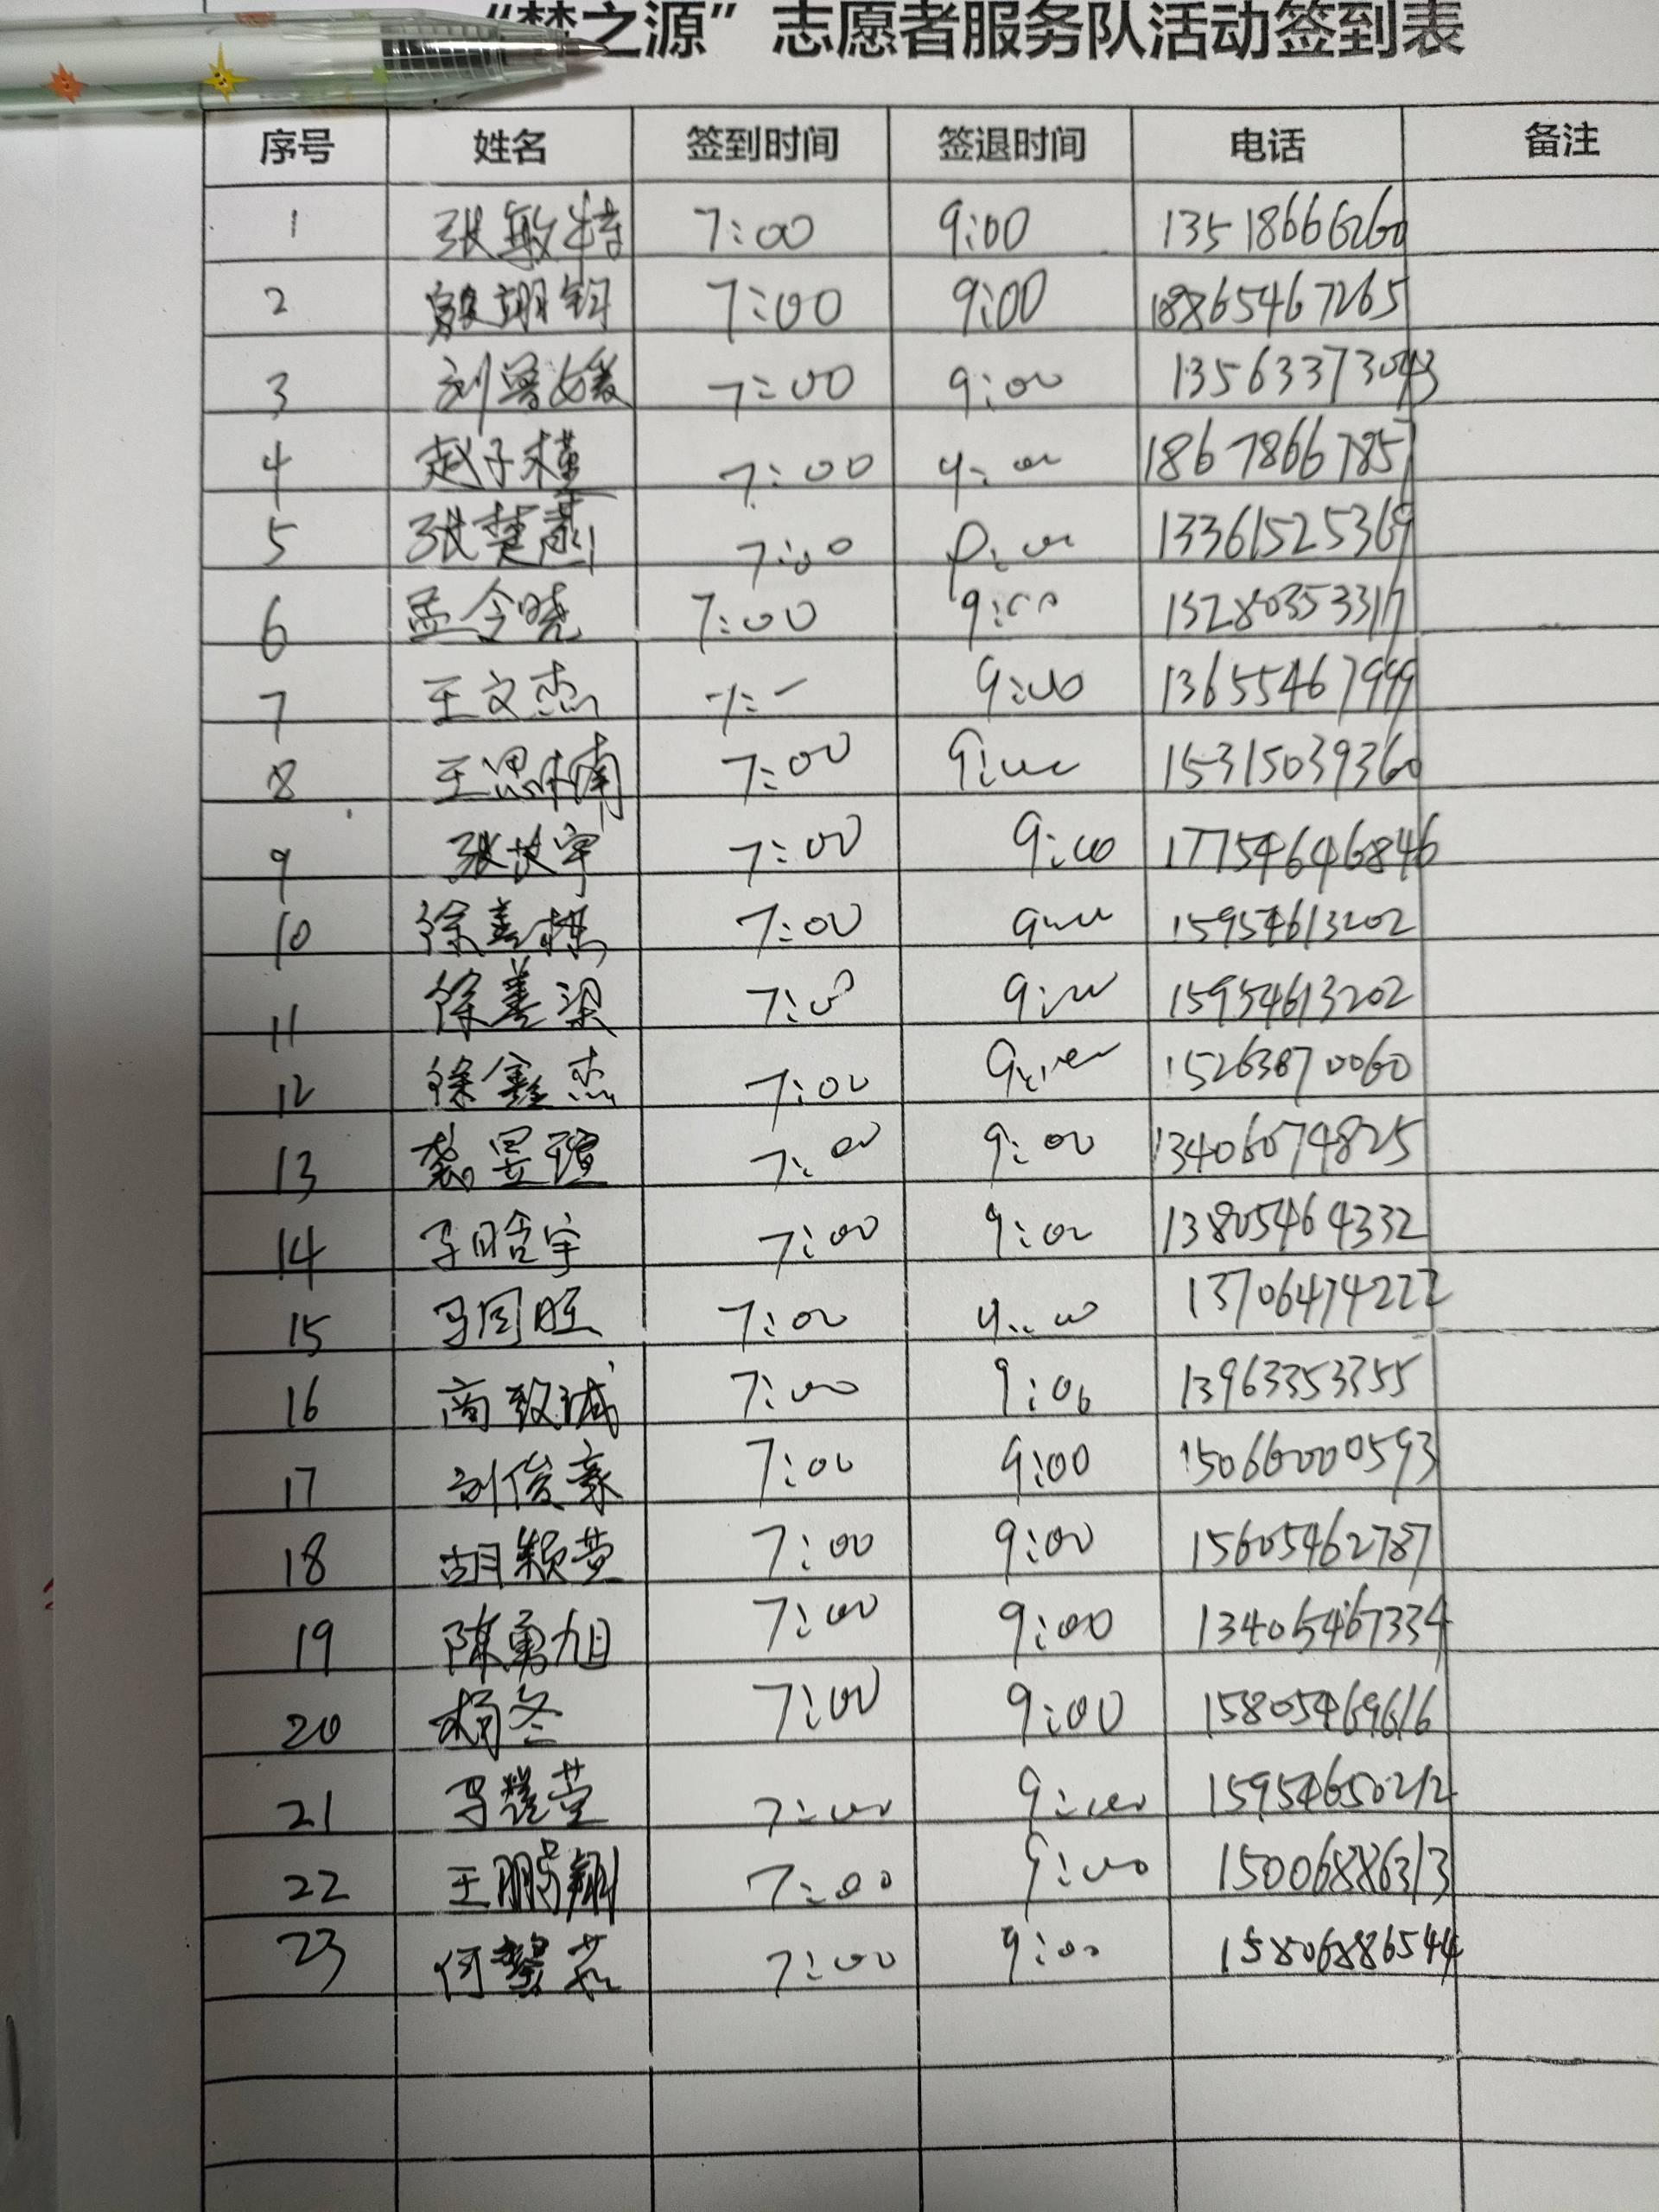 “梦之源”志愿者服务队活动签到表
序号 姓名 签到时间 签退时间 电话 备注
1 张敏特 7:00 9:00 13518666260
2 殷翊钧 7:00 9:00 18865467265
3 刘曼媛 7:00 9:00 1356337
4 赵子槿 7:00 9:00 18678667857
5 张楚 7:00 9:00 13361525369
6 孟令晓 7:00 9:00 13280353317
7 王文杰 9:00 13655467999
8 王思楠 7:00 9:00 15315039360
9 张 宇 7:00 9:00 17754646846
10 徐善栋 7:00 15954613202
11 徐善梁 7:00 9:00 15954613202
12 徐鑫杰 7:00 9:00 15263870060
13 龚昱瑄 7:00 9:00 13406074825
14 马晗宇 7:00 9:00 13805464332
15 马同旺 7:00 13706474222
16 商致诚 7:00 9:00 13963353355
17 刘俊豪 7:00 9:00 15066000593
18 胡颖萱 7:00 9:00 15605462787
19 陈勇旭 7:00 9:00 13405467334
20 杨冬 7:00 9:00 15805469616
21 马 萱 7:00 9:00 15954650212
22 王鹏翔 7:00 9:00 15006886313
23 何 7:00 9:00 15806886544